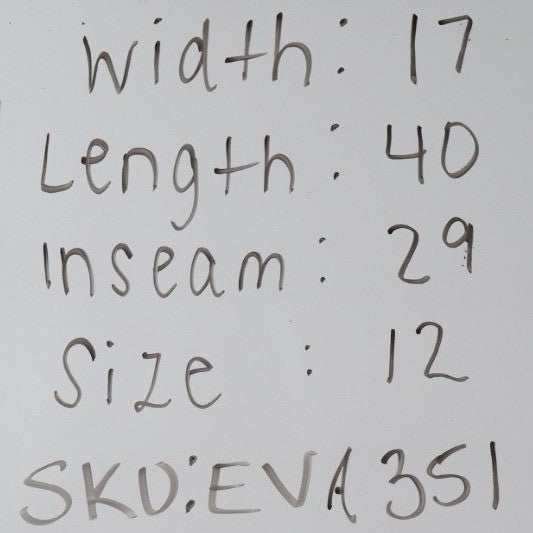 Width: 17
Length: 40
Inseam: 29
Size : 12
SKU:EVA351